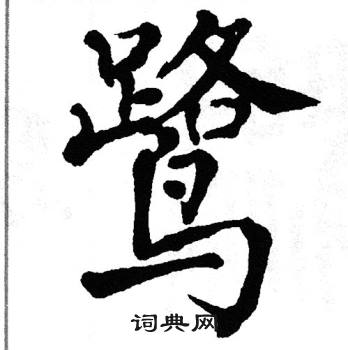 鹭
词典网